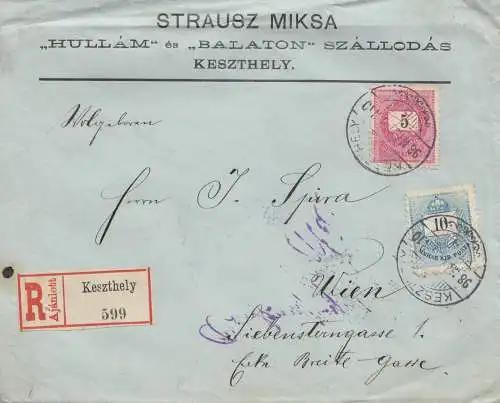 STRAUSZ MIKSA
„HULLÁM“ és „BALATON“ SZÁLLODÁS
KESZTHELY.
5
Wolgeboren
Herrn J. Spira
10
KESZTHELY
R
Ajánlott
Keszthely
599
Wien
Siebensterngasse 1.
Ecke Breite-Gasse.